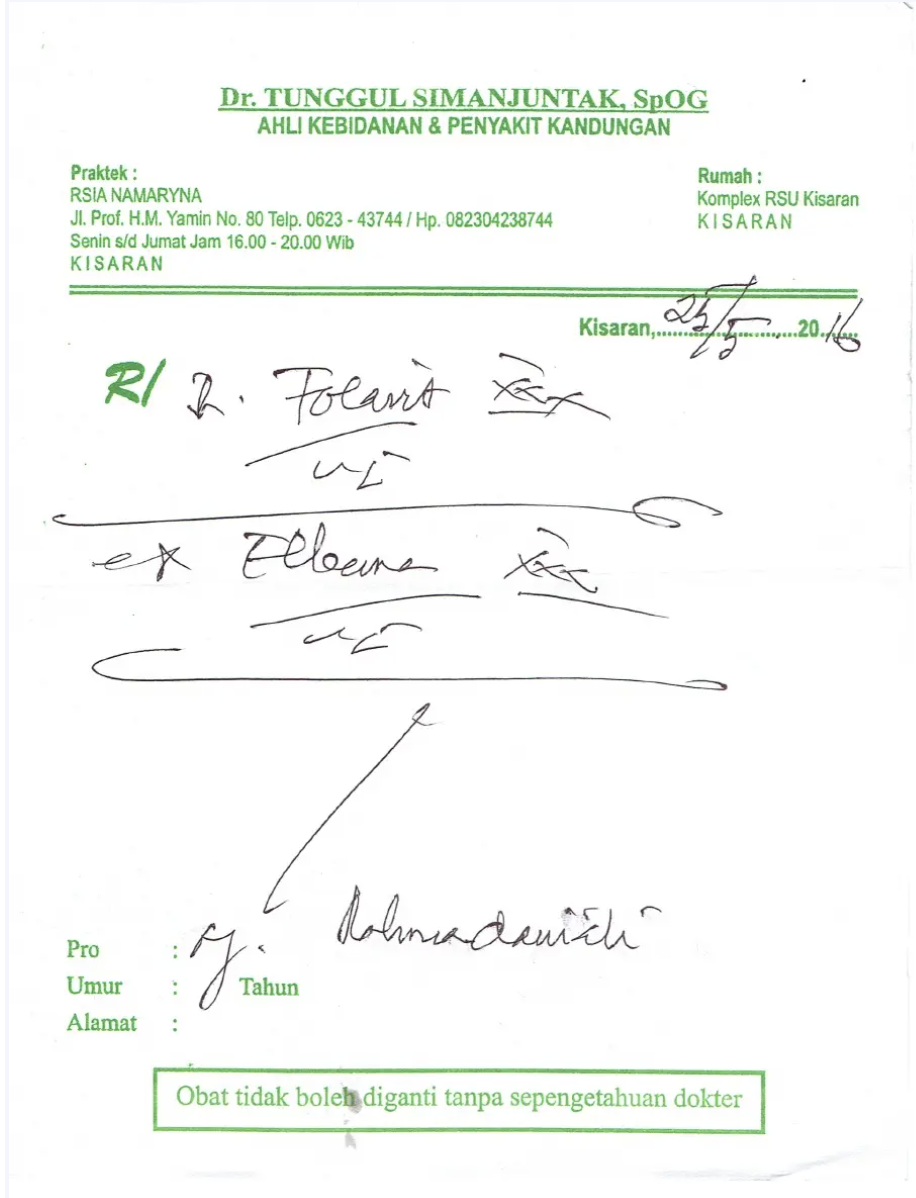 Dr. TUNGGUL SIMANJUNTAK, SpOG
AHLI KEBIDANAN & PENYAKIT KANDUNGAN
Praktek :
RSIA NAMARYNA
Jl. Prof. H.M. Yamin No. 80 Telp. 0623 - 43744 / Hp. 082304238744
Senin s/d Jumat Jam 16.00 - 20.00 Wib
KISARAN
Rumah :
Komplex RSU Kisaran
KISARAN
Kisaran, 25/5 2016
R/ Folavit XXX
XXX
Pro : Ny.
Umur : Tahun
Alamat :
Obat tidak boleh diganti tanpa sepengetahuan dokter